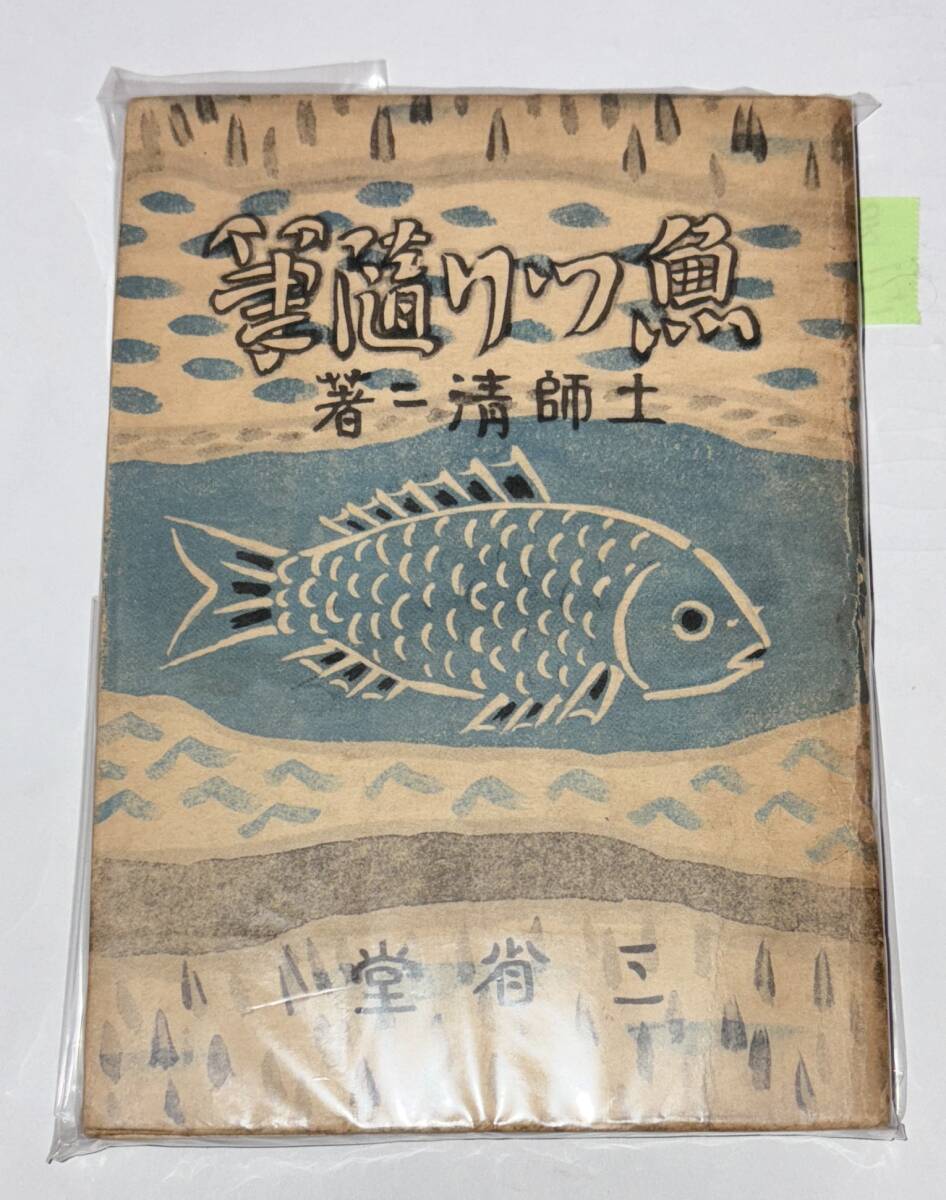 魚つり随筆
土師清二著
三省堂